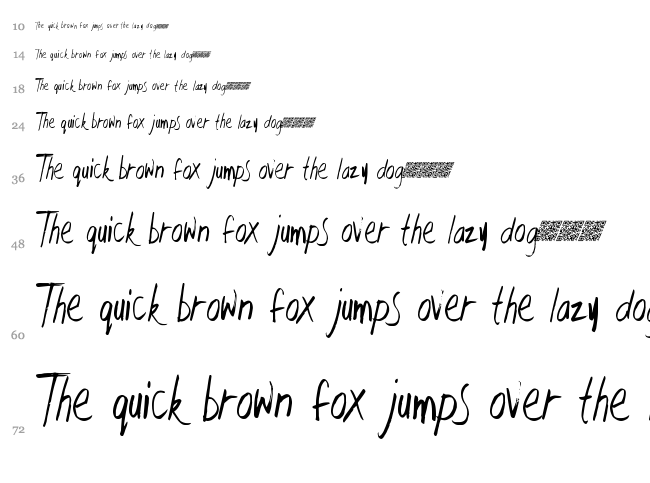 10 The quick brown fox jumps over the lazy dog
14 The quick brown fox jumps over the lazy dog
18 The quick brown fox jumps over the lazy dog
24 The quick brown fox jumps over the lazy dog
36 The quick brown fox jumps over the lazy dog
48 The quick brown fox jumps over the lazy dog
60 The quick brown fox jumps over the lazy dog
72 The quick brown fox jumps over the